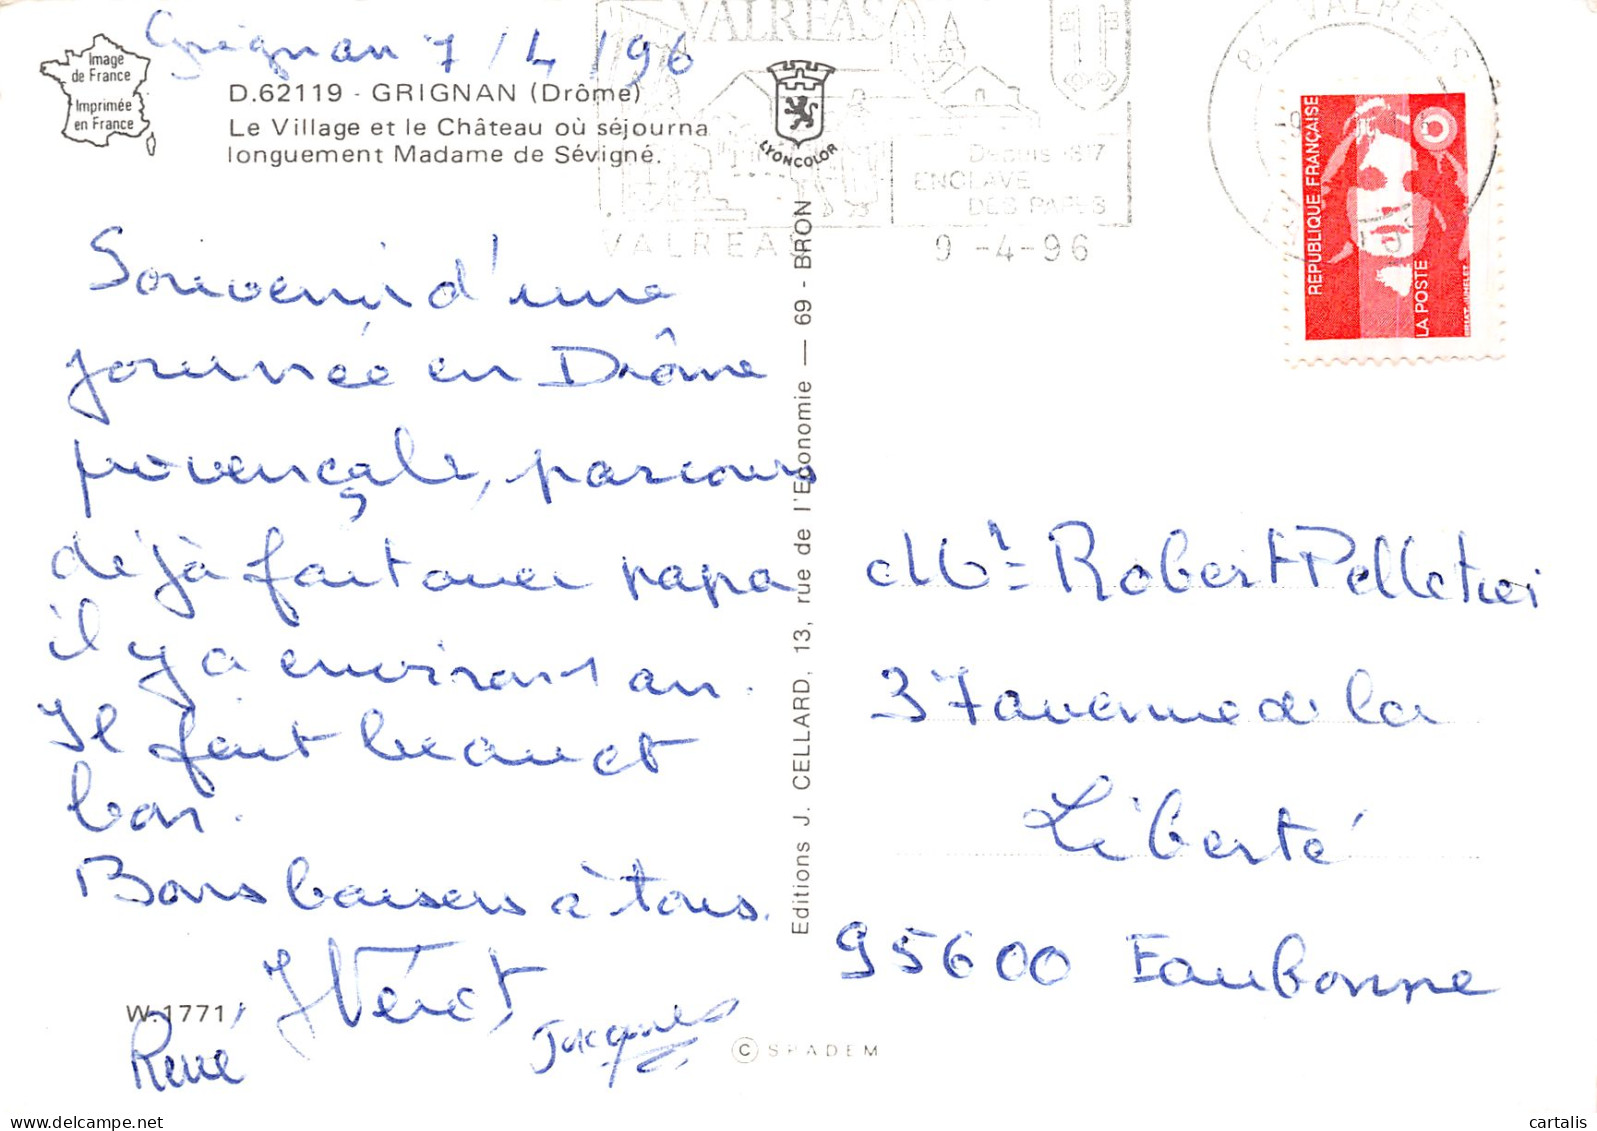 Grignan 7/4/96
Image
de France
Imprimée
en France
D.62119 - GRIGNAN (Drôme)
Le Village et le Château où séjourna
longuement Madame de Sévigné.
LYONCOLOR
VALREAS
ENCLAVE
DES PAPES
VALREAS 9-4-96
84 VALREAS
REPUBLIQUE FRANÇAISE
LA POSTE
Souvenir d'une
journée en Drôme
provençale, parcours
déjà fait avec papa
il y a environ 1 an.
Il fait beau et
bon.
Bons baisers à tous.
René
Jacques
W.1771
Editions J. CELLARD, 13, rue de l'Economie — 69 - BRON
© SPADEM
Mr Robert Pelletier
37 avenue de la
Liberté
95600 Eaubonne
cartalis